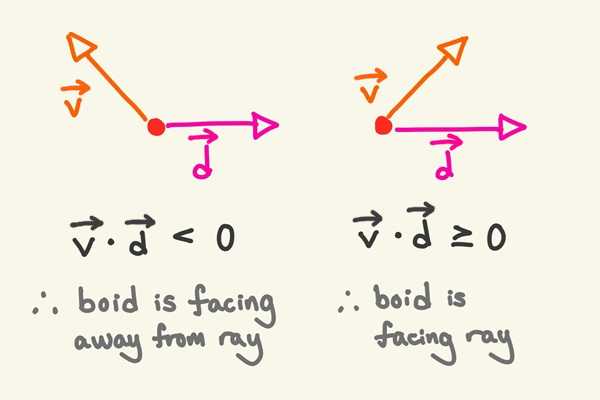 v⃗
d⃗
v⃗ · d⃗ < 0
∴ boid is facing
away from ray
v⃗
d⃗
v⃗ · d⃗ ≥ 0
∴ boid is
facing ray